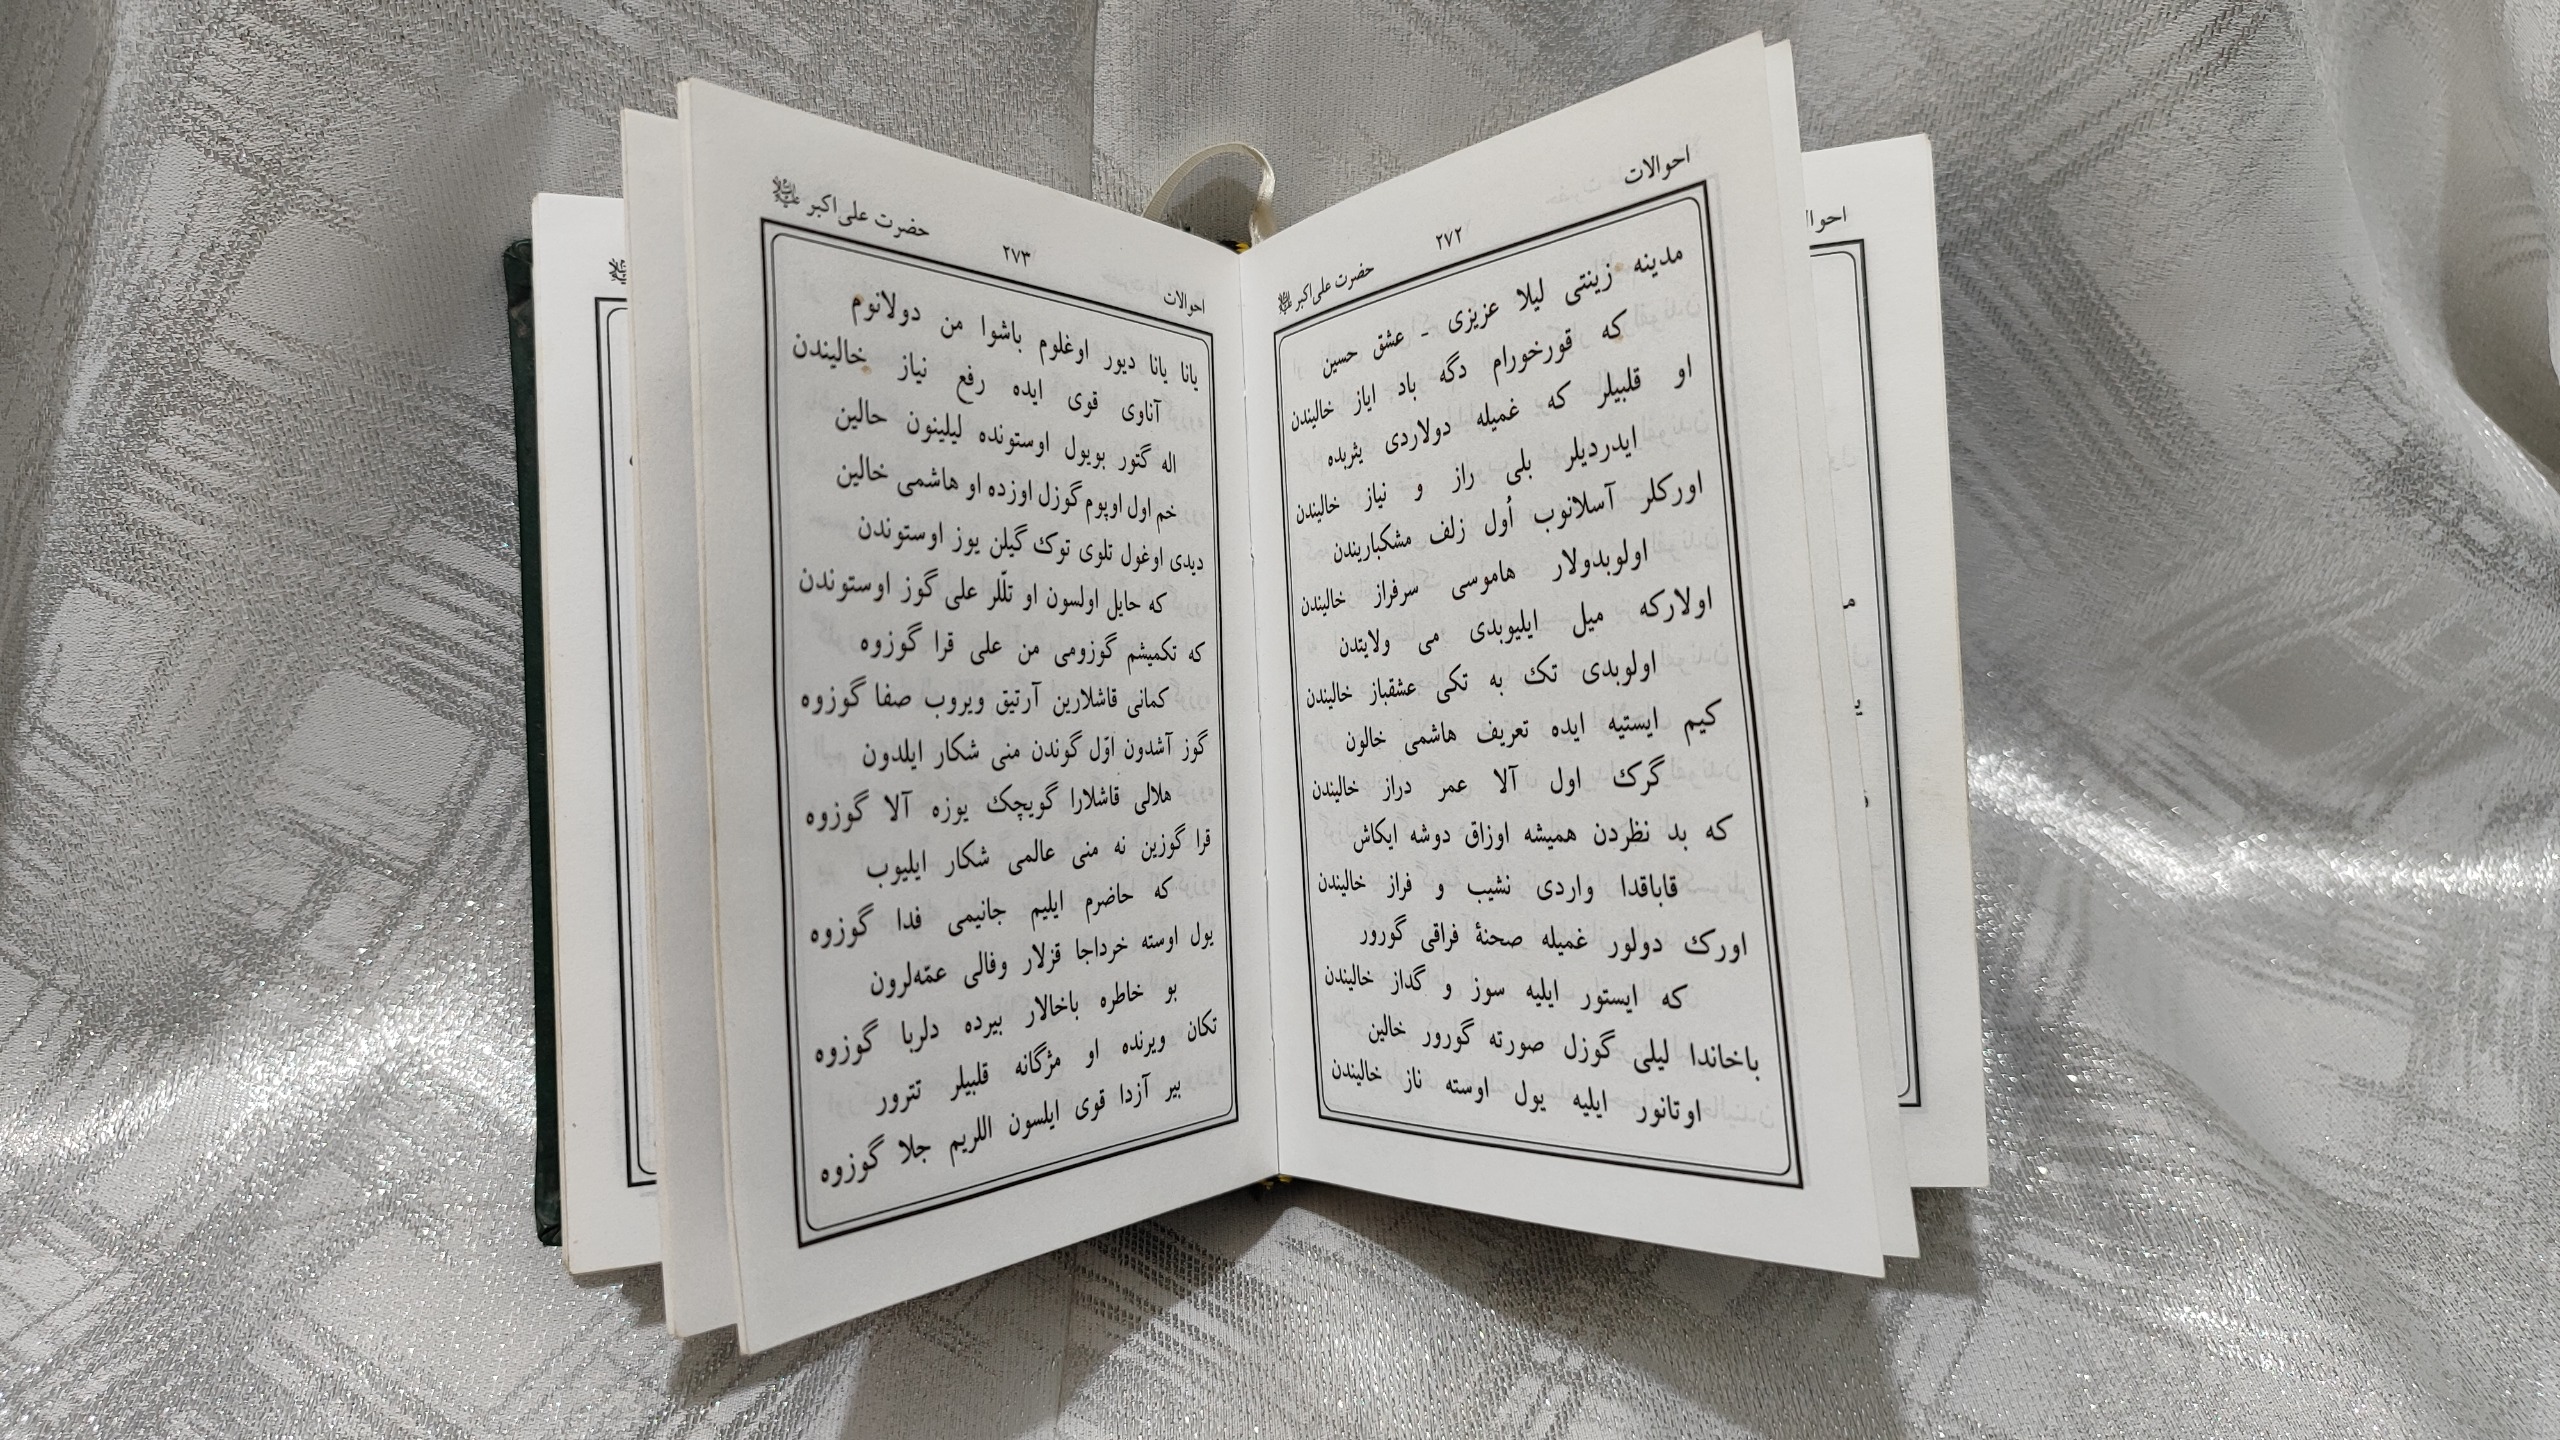 احوالات ۲۷۲ حضرت علی‌اکبر
مدینه زینتی لیلا عزیزی - عشق حسین
که قورخورام دگه باد ایاز خالیندن
او قلبیلر که غمیله دولاردی یثربده
ایدردیلر بلی راز و نیاز خالیندن
اورکلر آسلانوب اُول زلف مشکباریندن
اولوبدولار هاموسی سرفراز خالیندن
اولارکه میل ایلیوبدی می ولایتدن
اولوبدی تک به تکی عشقباز خالیندن
کیم ایستیه ایده تعریف هاشمی خالون
گرک اول آلا عمر دراز خالیندن
که بد نظردن همیشه اوزاق دوشه ایکاش
قاباقدا واردی نشیب و فراز خالیندن
اورک دولور غمیله صحنهٔ فراقی گورور
که ایستور ایلیه سوز و گداز خالیندن
باخاندا لیلی گوزل صورته گورور خالین
اوتانور ایلیه یول اوسته ناز خالیندن
احوالات ۲۷۳ حضرت علی‌اکبر
یانا یانا دیور اوغلوم باشوا من دولانوم
آناوی قوی ایده رفع نیاز خالیندن
اله گتور بویول اوستونده لیلینون حالین
خم اول اوپوم گوزل اوزده او هاشمی خالین
دیدی اوغول تلوی توک گیلن یوز اوستوندن
که حایل اولسون او تلّلر علی گوز اوستوندن
که تکمیشم گوزومی من علی قرا گوزوه
کمانی قاشلارین آرتیق ویروب صفا گوزوه
گوز آشدون اوّل گوندن منی شکار ایلدون
هلالی قاشلارا گویچک یوزه آلا گوزوه
قرا گوزین نه منی عالمی شکار ایلیوب
که حاضرم ایلیم جانیمی فدا گوزوه
یول اوسته خرداجا قزلار وفالی عمّه‌لرون
بو خاطره باخالار بیرده دلربا گوزوه
تکان ویرنده او مژگانه قلبیلر تترور
بیر آزدا قوی ایلسون اللریم جلا گوزوه
احوالا